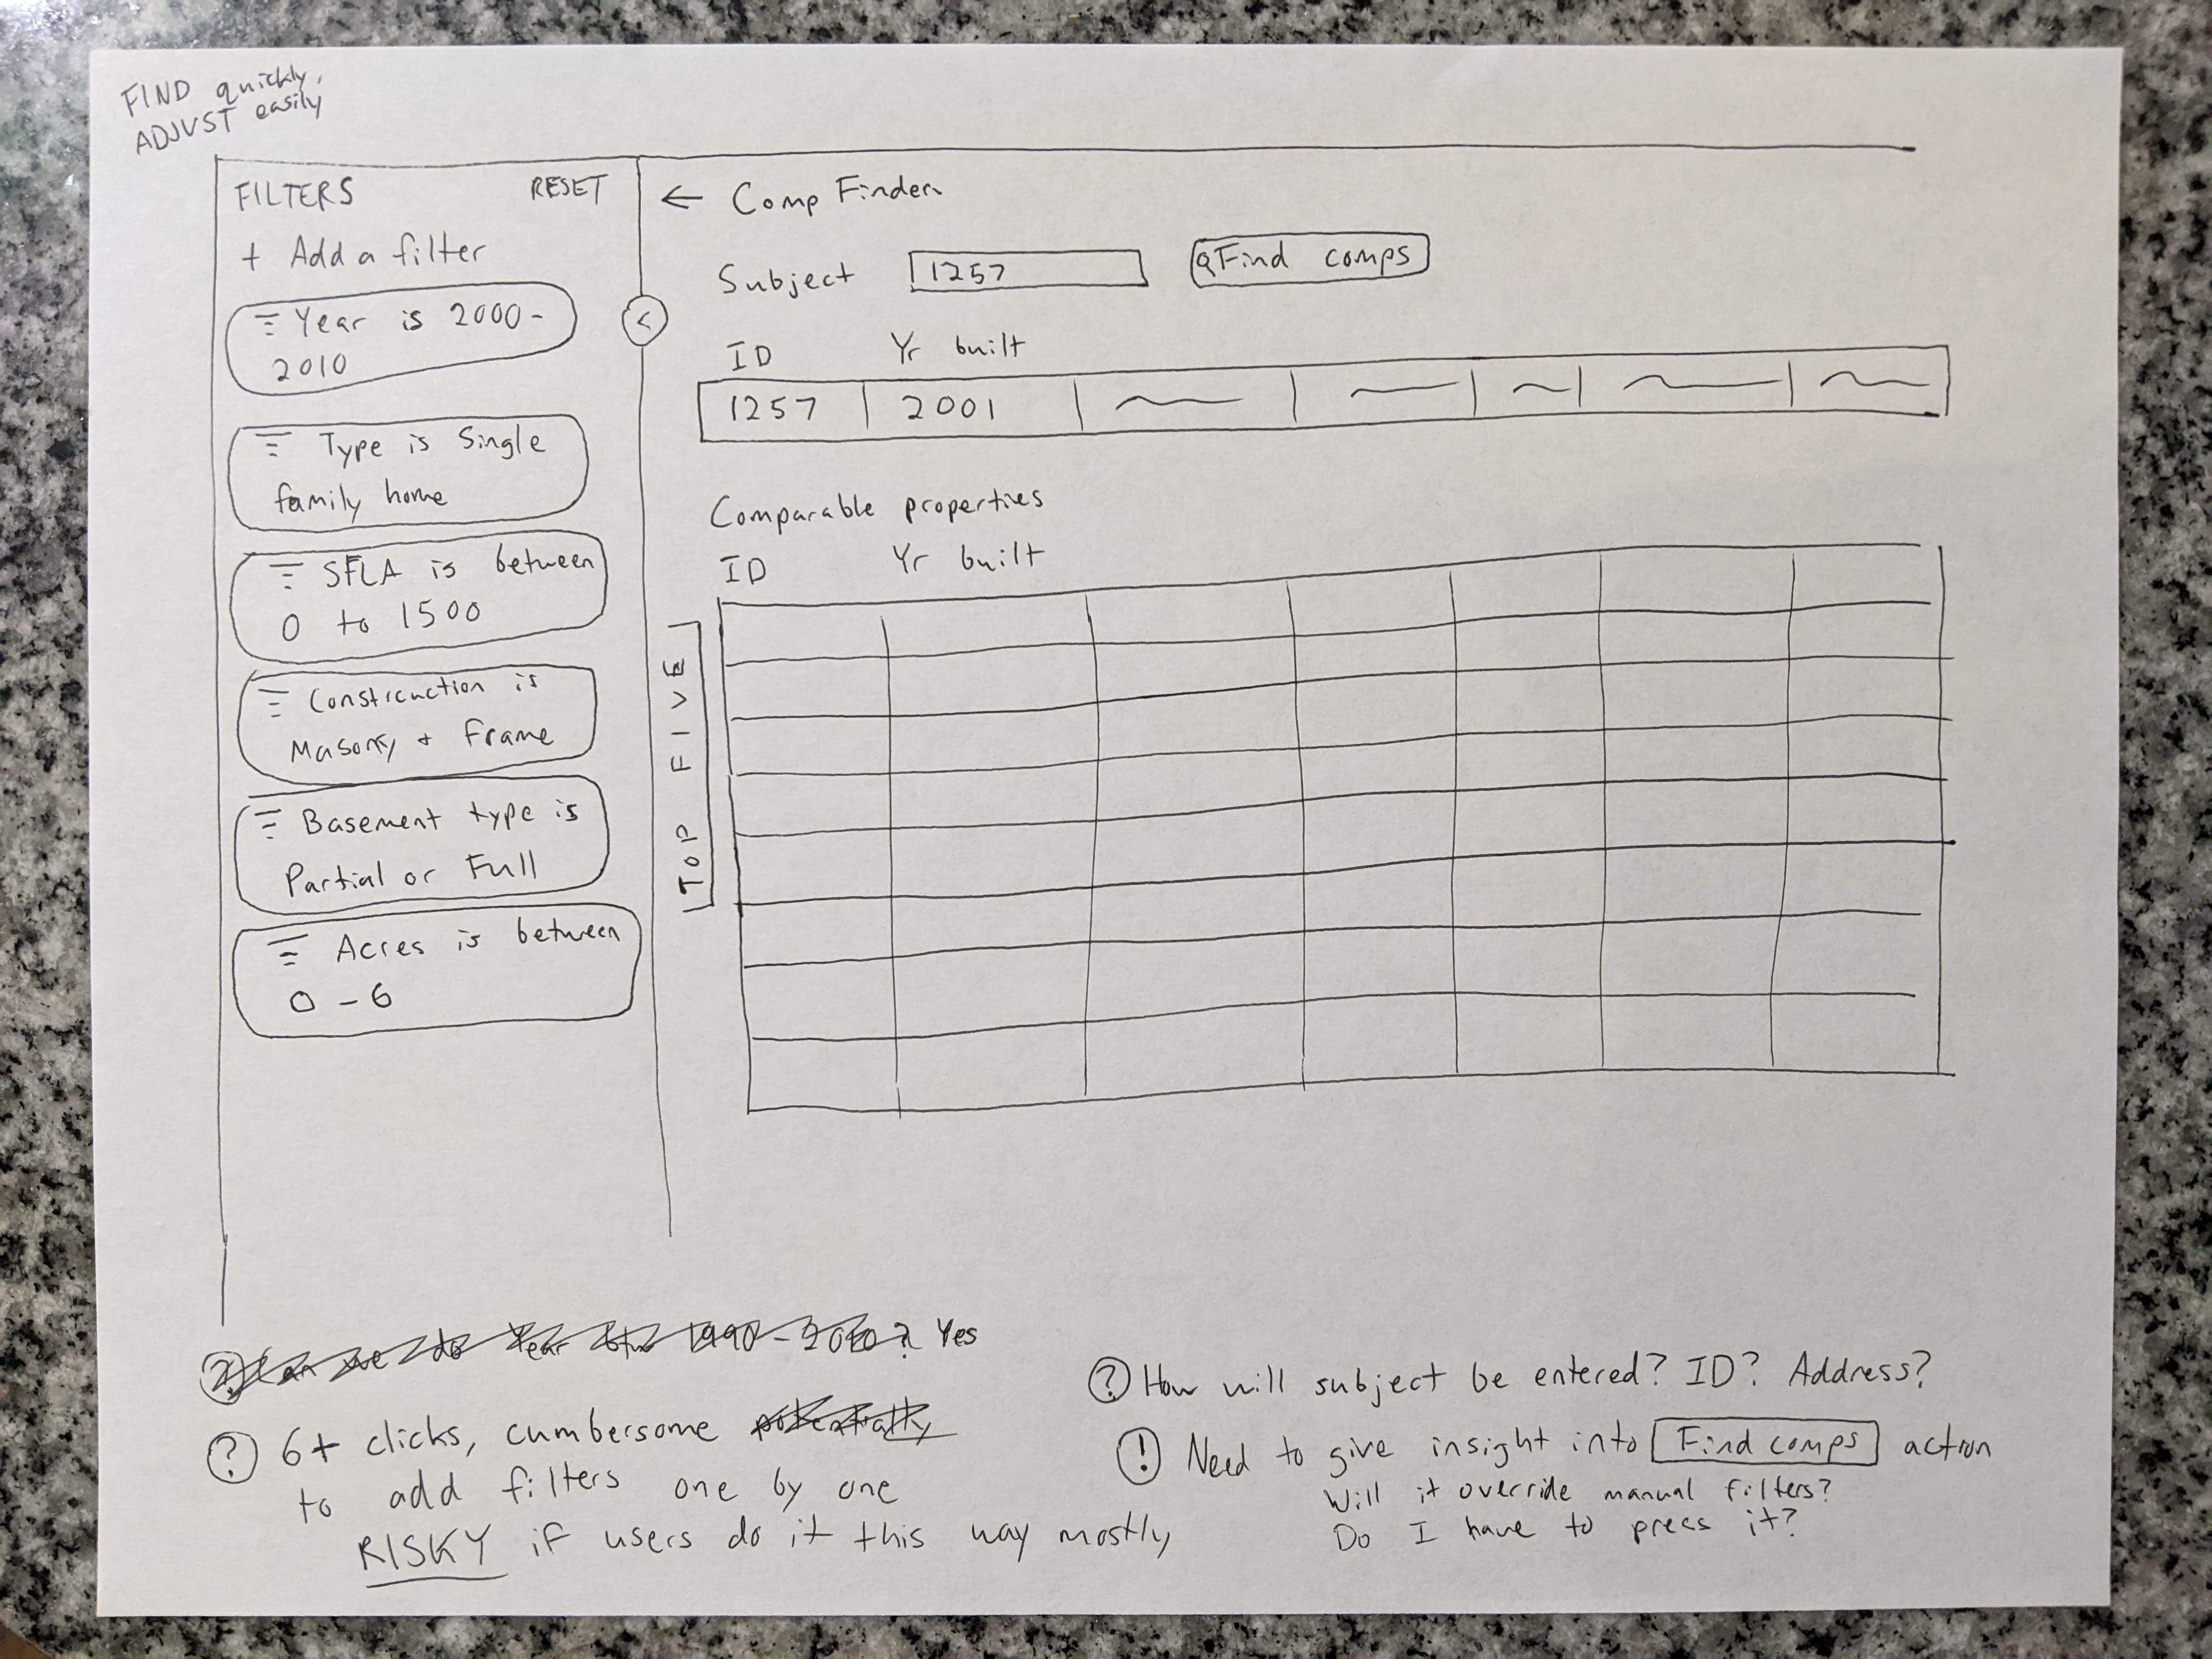 FIND quickly,
ADJUST easily
FILTERS RESET
+ Add a filter
Year is 2000-
2010
Type is Single
family home
SFLA is between
0 to 1500
Construction is
Masonry + Frame
Basement type is
Partial or Full
Acres is between
0 - 6
<
← Comp Finder
Subject 1257 Find comps
ID Yr built
1257 2001
Comparable properties
ID Yr built
TOP FIVE
? Can we do Year btw 1990-2010? Yes
? 6+ clicks, cumbersome potentially
to add filters one by one
RISKY if users do it this way mostly
? How will subject be entered? ID? Address?
! Need to give insight into Find comps action
Will it override manual filters?
Do I have to press it?